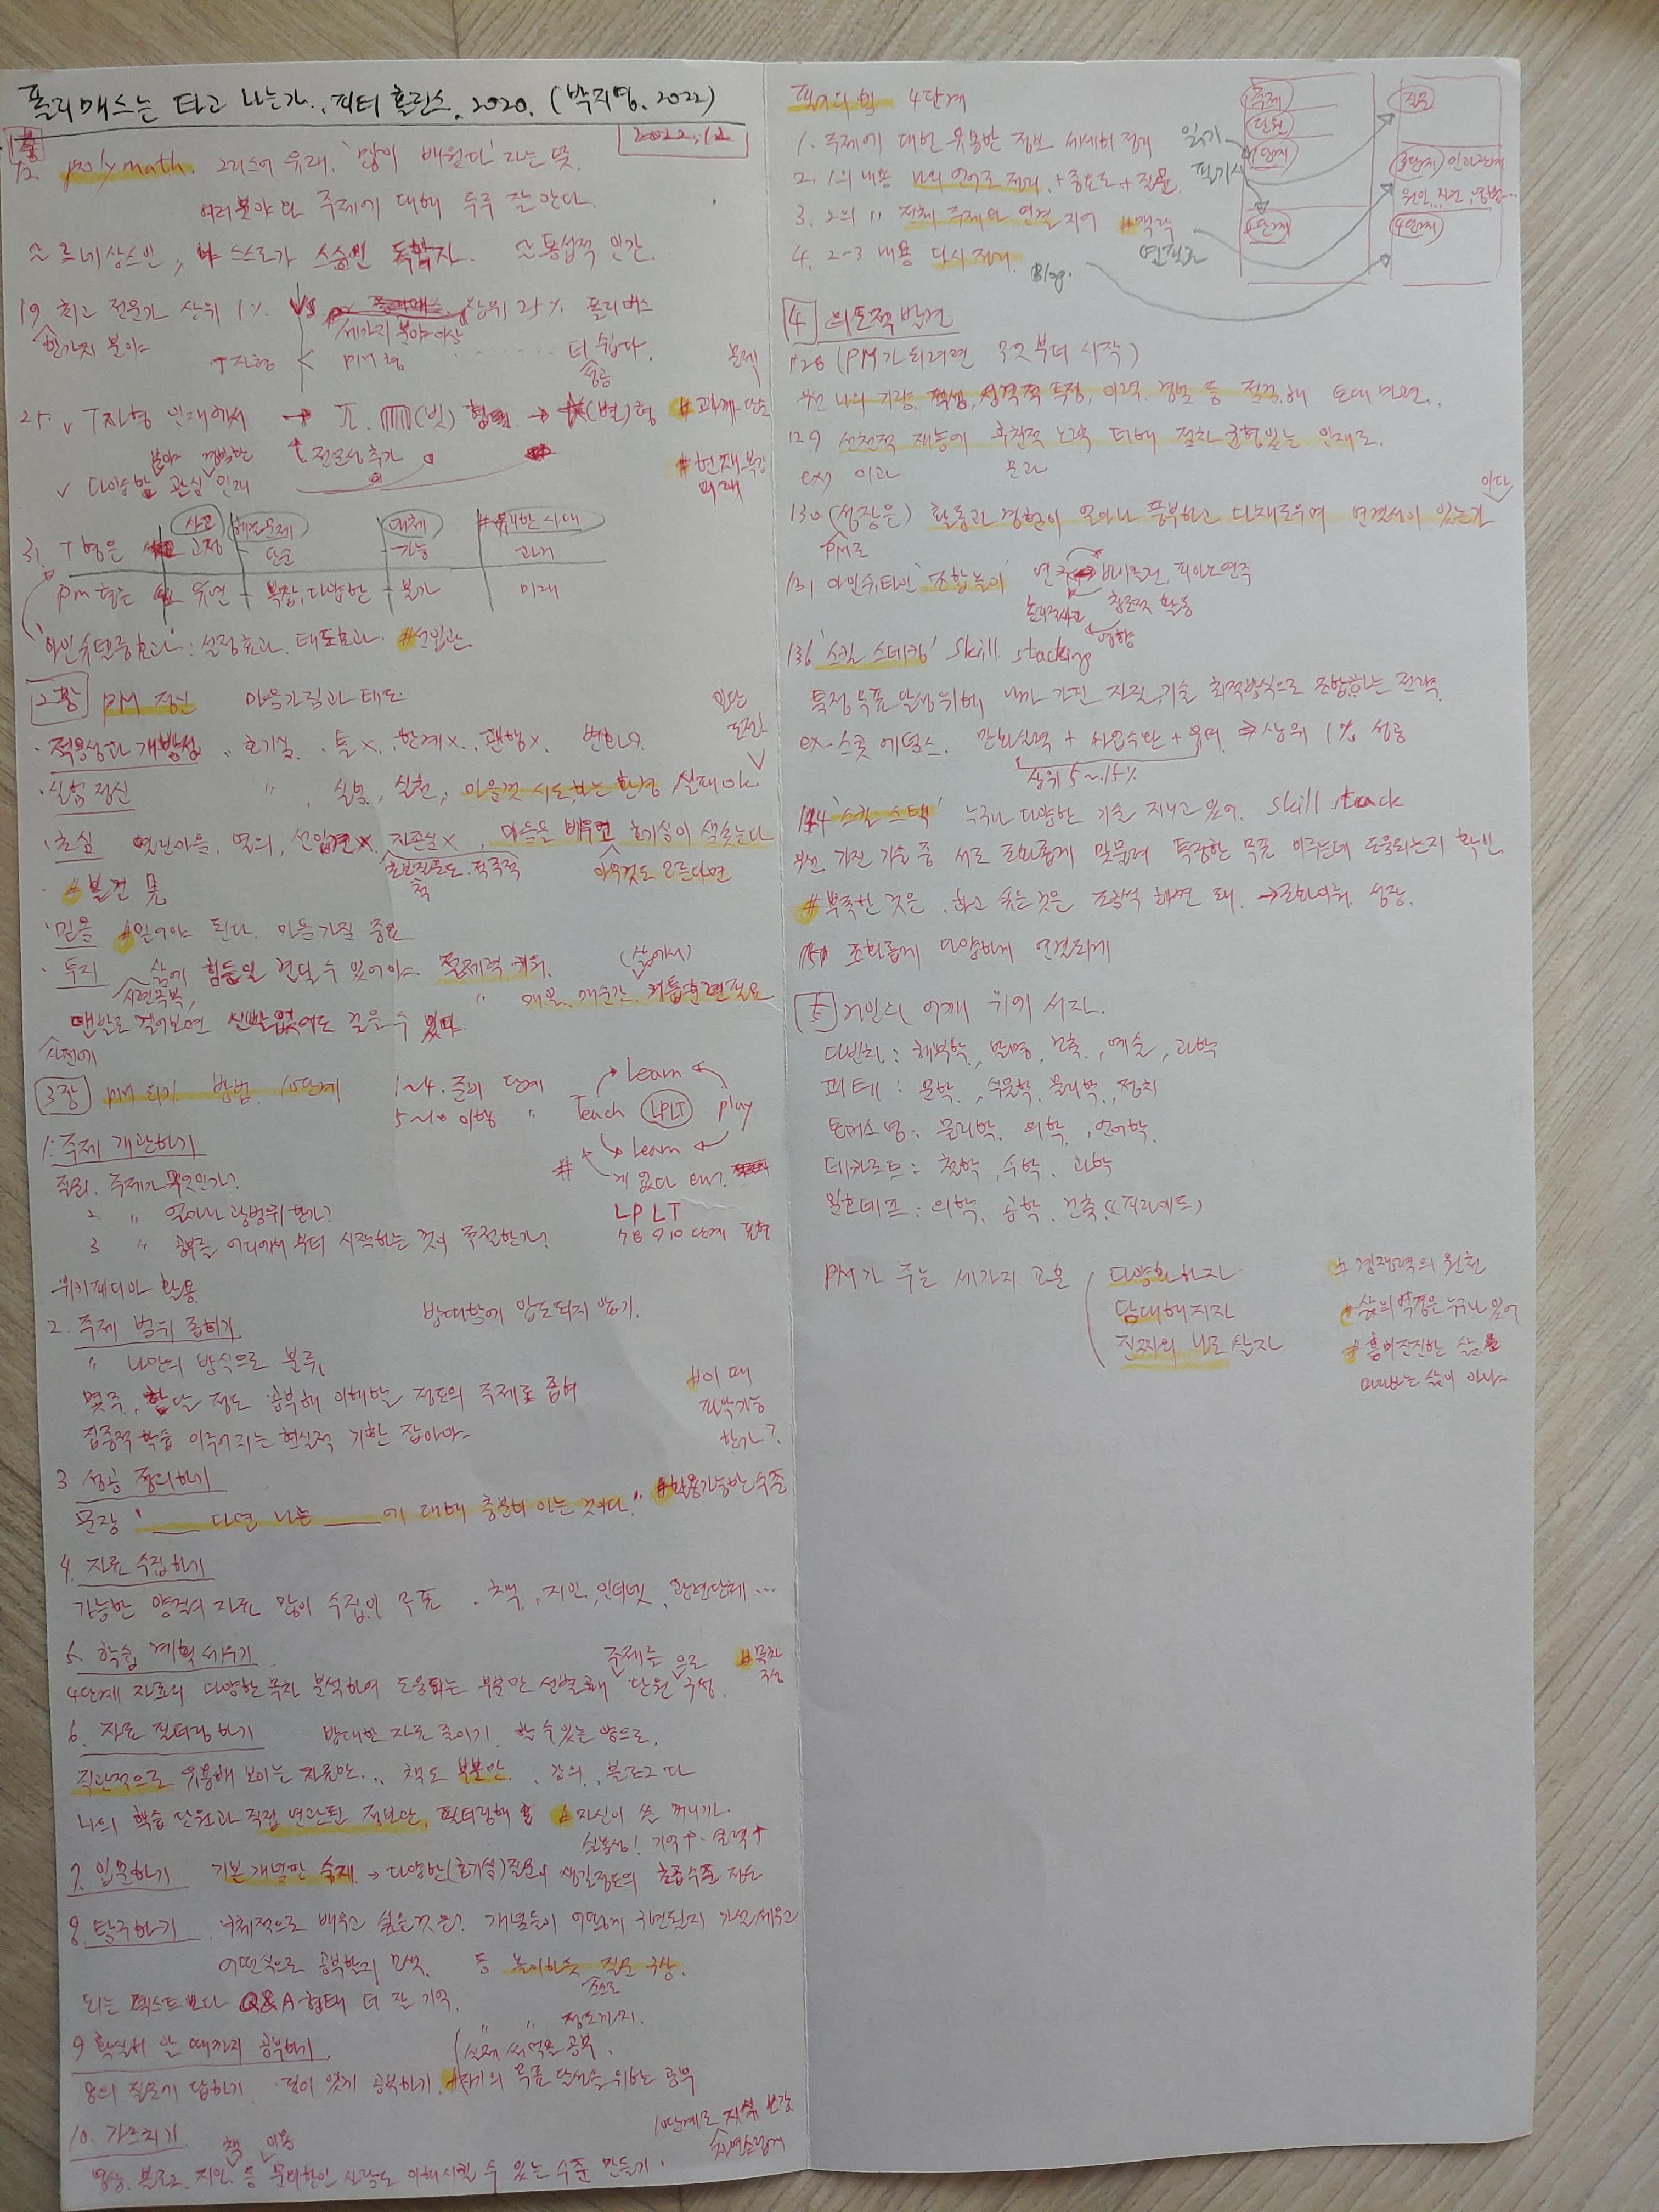 폴리매스는 타고 나는가. 피터 홀린스. 2020. (박지영. 2022)
2022.12
12. polymath. 그리스어 유래. '많이 배웠다'라는 뜻.
여러분야의 주제에 대해 두루 잘 안다.
르네상스인, 스스로가 스승인 독학자. 통섭적 인간.
19 최고 전문가 상위 1% VS 상위 25% 폴리매스
한가지 분야 세가지 분야 이상
T자형 < PM형 더 쉽다.
성공
25. v T자형 인재에서 → π. (빗) 형 → (별)형
전문성 추가
v 다양한 분야 관심 인재
사고 대체 유리한 시대
31. T형은 고정 단순 가능 과거
PM형은 유연 복잡, 다양한 불가 미래
'아인슈텔룽효과' : 설정효과. 태도효과. #선입관.
2장 PM 정신 마음가짐과 태도.
· 적응성과 개방성 호기심. 틀X. 한계X. 관행X.
일단 도전
· 실험 정신 〃, 실천, 마음껏 시도하는 환경, 실패 ok
· 초심 열린마음, 열의, 선입견X. 자존심X, 마음을 배우면 호기심이 샘솟는다
아무것도 모른다면
· 믿음 #믿어야 된다. 마음가짐 중요
· 투지 삶에 힘든일 견딜 수 있어야.
시련극복,
맨발로 걸어보면 신발 없어도 걸을 수 있다.
사전에
3장 PM 되기 방법. 10단계 1~4. 준비 단계
5~10 이행 〃
Learn
Teach LPLT play
Learn
LPLT
7 8 9 10 단계 포함
1. 주제 개관하기
주제가 무엇인가?
2 〃 얼마나 광범위한가?
3 〃 공부를 어디에서부터 시작하는 것이 적절한가?
위키피디아 활용
방대함에 압도되지 않기.
2. 주제 범위 좁히기
〃 나만의 방식으로 분류,
몇주, 한달 정도 공부해 이해할 정도의 주제로 좁혀
집중적 학습 이루어지는 현실적 기한 잡아야
#이 때
파악가능
한가?
3 성공 정의하기
문장 '____ 다면 나는 ____에 대해 충분히 아는 것이다.' #활용가능한 수준
4. 자료 수집하기
가능한 양질의 자료 많이 수집이 목표. 책, 지인, 인터넷, 관련단체...
5. 학습 계획 세우기
4단계 자료의 다양한 목차 분석하여 도움되는 부분만 선별해 주제를 단원으로 구성. #목차 구성
6. 자료 필터링하기 방대한 자료 줄이기. 할 수 있는 양으로.
직관적으로 유용해 보이는 자료만.. 책도 부분만. 강의, 블로그 다
나의 학습 단원과 직접 연관된 정보만, 필터링해
실용성! 기억↑
7. 입문하기 기본 개념만 숙지 → 다양한(호기심) 질문이 생길정도의 초급수준 정도
8. 탐구하기 구체적으로 배우고 싶은것은? 개념들이 어떻게 구현될지 가설 세우고
어떤식으로 공부할지 모색. 등 놀이하듯 질문 구상.
스스로
뇌는 텍스트보다 Q&A 형태 더 잘 기억.
9 확실히 알 때까지 공부하기
8의 질문에 답하기. 깊이 있게 공부하기. #자기의 목표 달성을 위한 공부
10. 가르치기
영상. 블로그. 지인. 등 문외한인 사람도 이해시킬 수 있는 수준 만들기.
필기의 법 4단계
1. 주제에 대한 유용한 정보 세세히 정리
2. 1의 내용 나의 언어로 정리. + 중요도 + 질문.
3. 2의 〃 전체 주제와 연결 지어 #맥락
4. 2-3 내용 다시 정리.
Blog.
주제
단원
1단계
2단계
질문
3단계 인과관계
4단계
4 의도적 발견
128 (PM가 되려면 무엇부터 시작)
우선 나의 기량. 적성, 성격적 특징, 이력. 경험 등 점검해 토대 마련.
129 선천적 재능에 후천적 노력 더해 점차 균형있는 인재로.
ex) 이과 문과
130 (성장은) 활동과 경험이 얼마나 풍부하고 다채로우며 연결성이 있는가
PM로
131 아인슈타인 '조합놀이' 연구 바이올린, 피아노연주
논리적사고 창조적 활동
영향
136 '스킬 스태킹' skill stacking
특정 목표 달성위해 내가 가진 자질, 기술 최적방식으로 조합하는 전략.
ex. 스콧 애덤스. 만화실력 + 사업수단 + 유머 ⇒ 상위 1% 성공
상위 5~15%
144 '스킬 스택' 누구나 다양한 기술 지니고 있어. skill stack
우선 가진 기술 중 서로 조화롭게 맞물려 특정한 목표 이루는데 도움되는지 확인
#부족한 것은. 하고 싶은것은 조금씩 해면 돼. → 조화이뤄 성장.
151 조화롭게 다양하게 연결되게
5 거인의 어깨 위에 서자.
다빈치 : 해부학, 발명, 건축, 예술, 과학
괴테 : 문학, 식물학, 물리학, 정치
토머스 영 : 물리학. 의학, 언어학.
데카르트 : 철학, 수학. 과학
임호테프 : 의학, 공학. 건축. (피라미드)
PM가 주는 세가지 교훈 다양화하자 #경쟁력의 원천
담대해지자 #삶의 역경은 누구나 있어
진짜의 나로 살자 #흥미진진한 삶